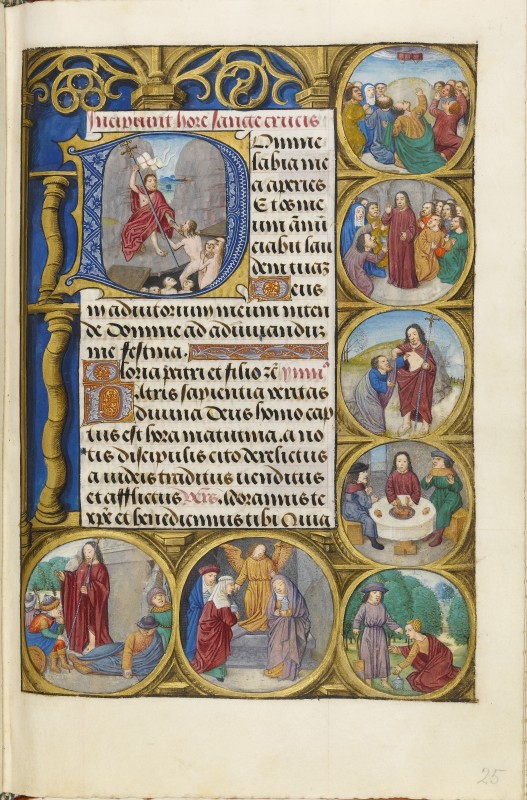 Incipiunt hore sancte crucis
Domine
labia me
a aperies
Et os me
um ānū
ciabit lau
dem tuaꝫ
Deus
in adiutorium meum inten
de Domine ad adiuvanduꝫ
me festina.
Gloria patri et filio ꝛc̄ ymn⁹
Patris sapientia veritas
divina Deus homo cap
tus est hora matutina. a no
tis discipulis cito derelictus
a iudeis traditus venditus
et afflictus vers̄. Adoramus te
xp̄e et benedicimus tibi Quia
25